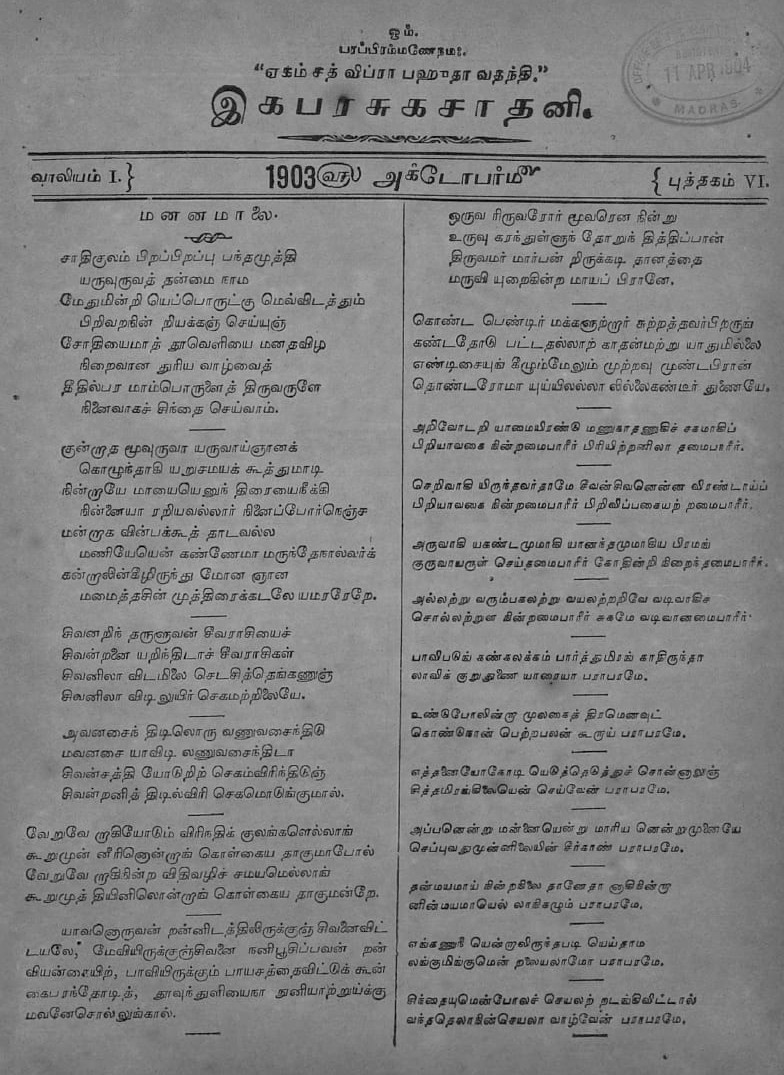 ஓம்.
பரப்பிரம்மணேநமஃ.
“ஏகம்சத் விப்ரா பஹுதா வதந்தி.”
இகபரசுகசாதனி.
11 APR 1904
MADRAS
வாலியம் I.}
1903 ௵ அக்டோபர்௴
{ புத்தகம் VI.
மனனமாலை.
சாதிகுலம் பிறப்பிறப்பு பந்தமுத்தி
யருவுருவத் தன்மை நாம
மேதுமின்றி யெப்பொருட்கு மெவ்விடத்தும்
பிறிவறநின் றியக்கஞ் செய்யுஞ்
சோதியைமாத் தூவெளியை மனதவிழ
நிறைவான துரிய வாழ்வைத்
தீதில்பர மாம்பொருளைத் திருவருளே
நினைவாகச் சிந்தை செய்வாம்.
குன்றாத மூவுருவா யருவாய்ஞானக்
கொழுந்தாகி யறுசமயக் கூத்துமாடி
நின்றாயே மாயையெனுந் திரையைநீக்கி
நின்னையா ரறியவல்லார் நினைப்போர்நெஞ்ச
மன்றாக வின்பக்கூத் தாடவல்ல
மணியேயென் கண்ணேமா மருந்தேநால்வர்க்
கன்றாலின்கீழிருந்து மோன ஞான
மமைத்தசின் முத்திரைக்கடலே யமரரேறே.
சிவனறிந் தருளுவன் சீவராசியைச்
சிவன்றனை யறிந்திடாச் சீவராசிகள்
சிவனிலா விடமிலை செடசித்தெங்கணுஞ்
சிவனிலா விடிலுயிர் செகமற்றிலையே.
அவனசைந் திடிலொரு வணுவசைந்திடு
மவனசை யாவிடி லணுவசைந்திடா
சிவன்சத்தி யோடுறிற் செகம்விரிந்திடுஞ்
சிவன்றனித் திடில்விரி செகமொடுங்குமால்.
வேறுவே றாகியோடும் விரிநதிக் குலங்களெல்லாங்
கூறுமுன் னீரினொன்றாங் கொள்கைய தாகுமாபோல்
வேறுவே றாகிகின்ற விதிவழிச் சமயமெல்லாங்
கூறுமுத் தியினிலொன்றாங் கொள்கைய தாகுமன்றே.
யாவனொருவன் றன்னிடத்திலிருக்குஞ் சிவனைவிட்
டயலே, மேவியிருக்குஞ்சிவனை நனிபூசிப்பவன் றன்
வியன்கையிற், பாவியிருக்கும் பாயசத்தைவிட்டுக் கூன்
கைபரந்தோடித், தூவுந்துளியைநா துனியாற்றுய்க்கு
மவனேசொல்லுங்கால்.
ஒருவ ரிருவரோர் மூவரென நின்று
உருவு கரந்துள்ளுந் தோறுந் தித்திப்பான்
திருவமர் மார்பன் றிருக்கடி தானத்தை
மருவி யுறைகின்ற மாயப் பிரானே.
கொண்ட பெண்டிர் மக்களுற்றார் சுற்றத்தவர்பிறருங்
கண்டதோடு பட்டதல்லாற் காதன்மற்று யாதுமில்லை
எண்டிசையுங் கீழும்மேலும் முற்றவு முண்டபிரான்
தொண்டரோமா யுய்யிலல்லா லில்லைகண்டீர் துணையே.
அறிவோடறி யாமையிரண்டு மணுகாதணுகிச் சகமாகிப்
பிறியாவகை கின்றமைபாரீர் பிரியிற்றனிலா தமைபாரீர்.
செறிவாகி யிருந்தவர்தாமே சிவன்சிவனென்ன விரண்டாய்ப்
பிறியாவகை கின்றமைபாரீர் பிறிவிப்பகையற் றமைபாரீர்.
அருவாகி யகண்டமுமாகி யானந்தமுமாகிய பிரமங்
குருவாயருள் செய்தமைபாரீர் கோதின்றி கிறைந்தமைபாரீர்.
அல்லற்று வரும்பகலற்று வயலற்றறிவே வடிவாகிச
சொல்லற்றுன கின்றமைபாரீர் சுகமே வடிவானமைபாரீர்
பாவிபடுங் கண்கலக்கம் பார்த்துமிரங் காதிருந்தா
லாவிக் குறுதுணை யாரையா பராபரமே.
உண்டுபோலின்றா முலகைத் திரமெனவுட்
கொண்டுநான் பெற்றபலன் கூறாய் பராபரமே.
எத்தனையோகோடி யெடுத்தெடுத்துச் சொன்னாலுஞ்
சித்தமிரங்கிலையென் செய்வேன் பராபரமே.
அப்பனென்று மன்னையென்று மாரிய னென்றுமுனையே
செப்புவதுமுன்னிலையின் சீர்காண் பராபரமே.
தன்மயமாய் கின்றகிலை தானேதா னாகிகின்றா
னின்மயமாயெல் லாகிகழும் பராபரமே.
எங்கணுநீ யென்றாலிருந்தபடி யெய்தாம
லங்குமிங்குமென் றலையலாமோ பராபரமே.
சிந்தையுமென்போலச் செயலற் றடங்கிவிட்டால்
வந்ததெலாகின்செயலா வாழ்வேன் பராபரமே.